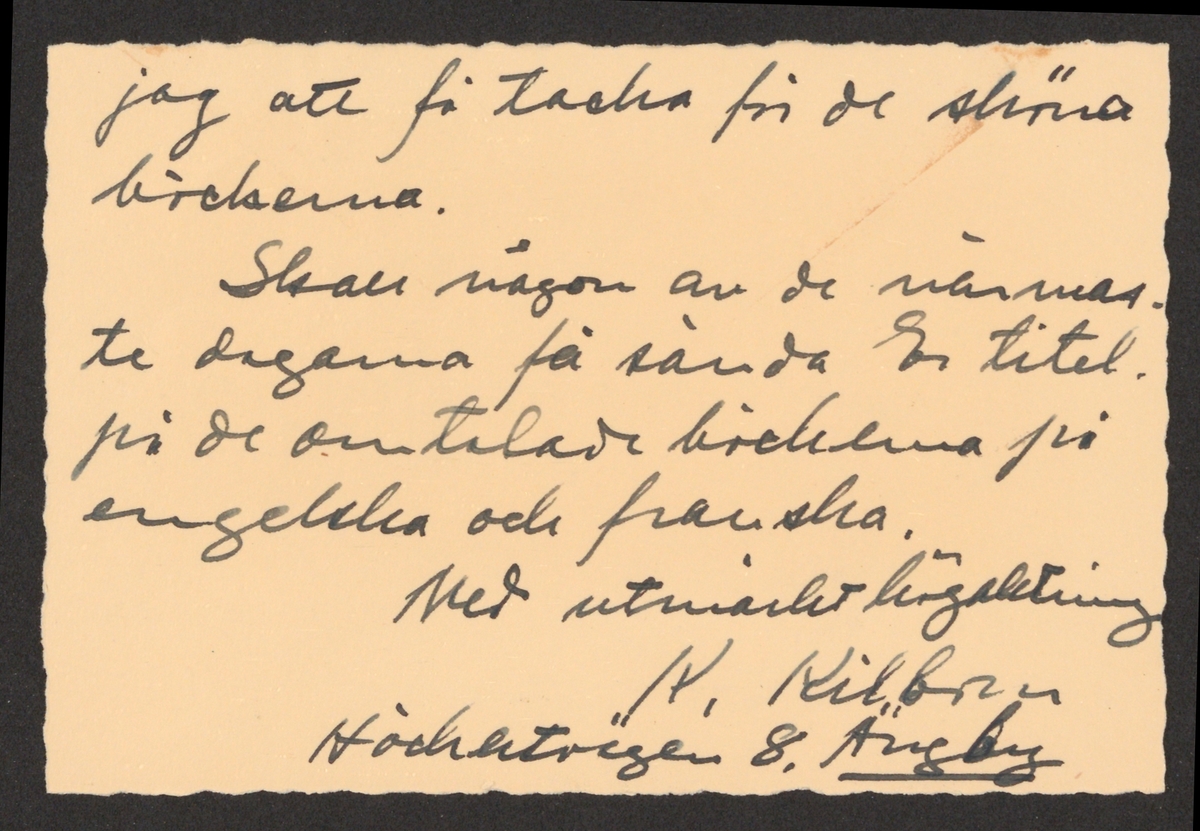 jag att få tacka för de sköna
böckerna.
Skall någon av de närmas-
te dagarna få sända Er titel.
på de omtalade böckerna på
engelska och franska.
Med utmärkt högaktning
K. Kilbom
8, Ängby